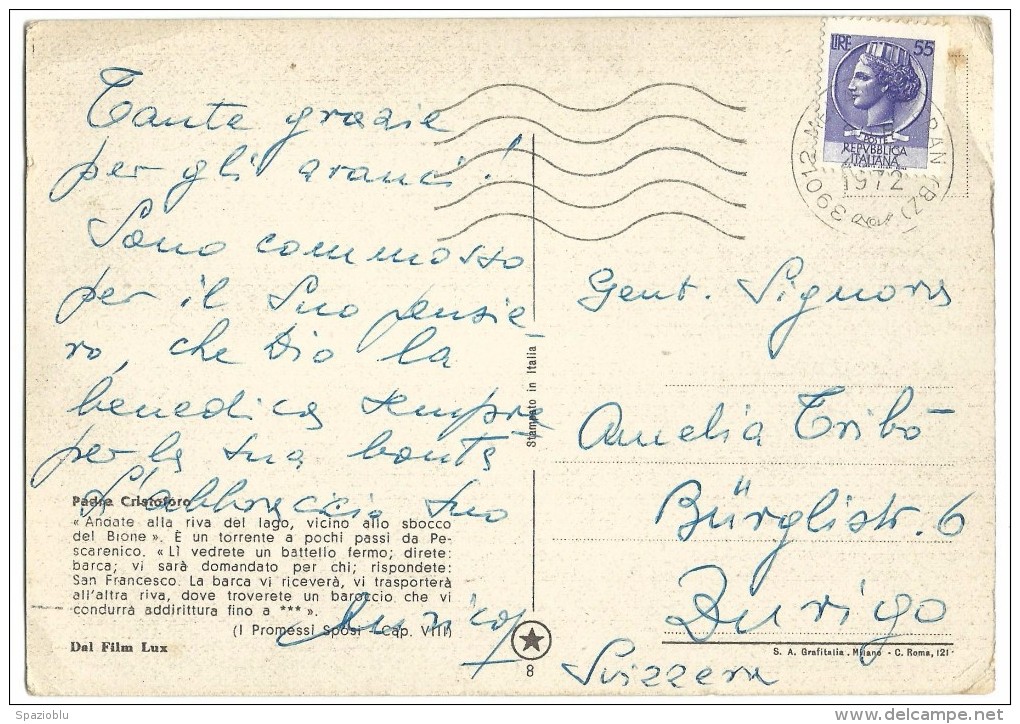 Tante grazie
per gli aranci!
Sono commosso
per il Suo pensie-
ro, che Dio la
benedica sempre
per la sua bontà
L'abbraccia suo
Padre Cristoforo
« Andate alla riva del lago, vicino allo sbocco
del Bione ». È un torrente a pochi passi da Pe-
scarenico. « Lì vedrete un battello fermo; direte:
barca; vi sarà domandato per chi; rispondete:
San Francesco. La barca vi riceverà, vi trasporterà
all'altra riva, dove troverete un baroccio che vi
condurrà addirittura fino a *** ».
(I Promessi Sposi - Cap. VIII)
Dal Film Lux
Stampato in Italia
8
LIRE 55
POSTE
REPVBBLICA
ITALIANA
39012
RAN (BZ)
1972
Gent. Signora
Amelia Tribò
Bürglistr. 6
Zurigo
Svizzera
S. A. Grafitalia. Milano - C. Roma, 121
Spazioblu
delcampe.net